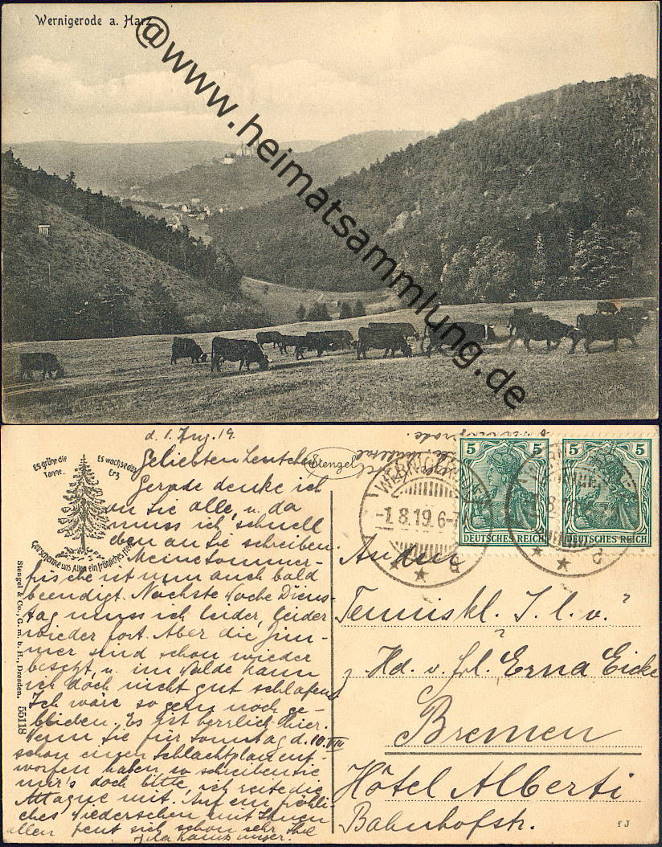 Wernigerode a. Harz.
@www.heimatsammlung.de
d. 1. Aug. 19.
Geliebten Leutchen
Gerade denke ich
an Sie alle, u. da
muss ich schnell
den an Sie schreiben.
Meine Sommer-
frische ist nun auch bald
beendigt. Nächste Woche Diens-
tag muss ich leider, leider
wieder fort. Aber die Zim-
mer sind schon wieder
besetzt, u. im Walde kann
ich doch nicht gut schlafen
Ich wäre so gern noch ge-
blieben. Es ist herrlich hier.
Wenn Sie für Sonntag d. 10. VIII
schon einen Schlachtplan ent-
worfen haben, so schreiben Sie
mir's doch bitte, ich reite die
Attaque mit. Auf ein fröhli-
ches Wiedersehen mit Ihnen
allen freut sich schon sehr Ihre
Es grüne die
Tanne
Es wachse das
Erz
Gott schenke uns Allen ein fröhliches Herz
Stengel & Co., G. m. b. H., Dresden.
55118
Stengel
WERNIGERODE
-1.8.19.6-7
* * c
5 5
DEUTSCHES REICH
5 5
DEUTSCHES REICH
An den
Tenniskl. I. l. v."
z. Hd. v. Frl. Erna Eicke
Bremen
Hôtel Alberti
Bahnhofstr.